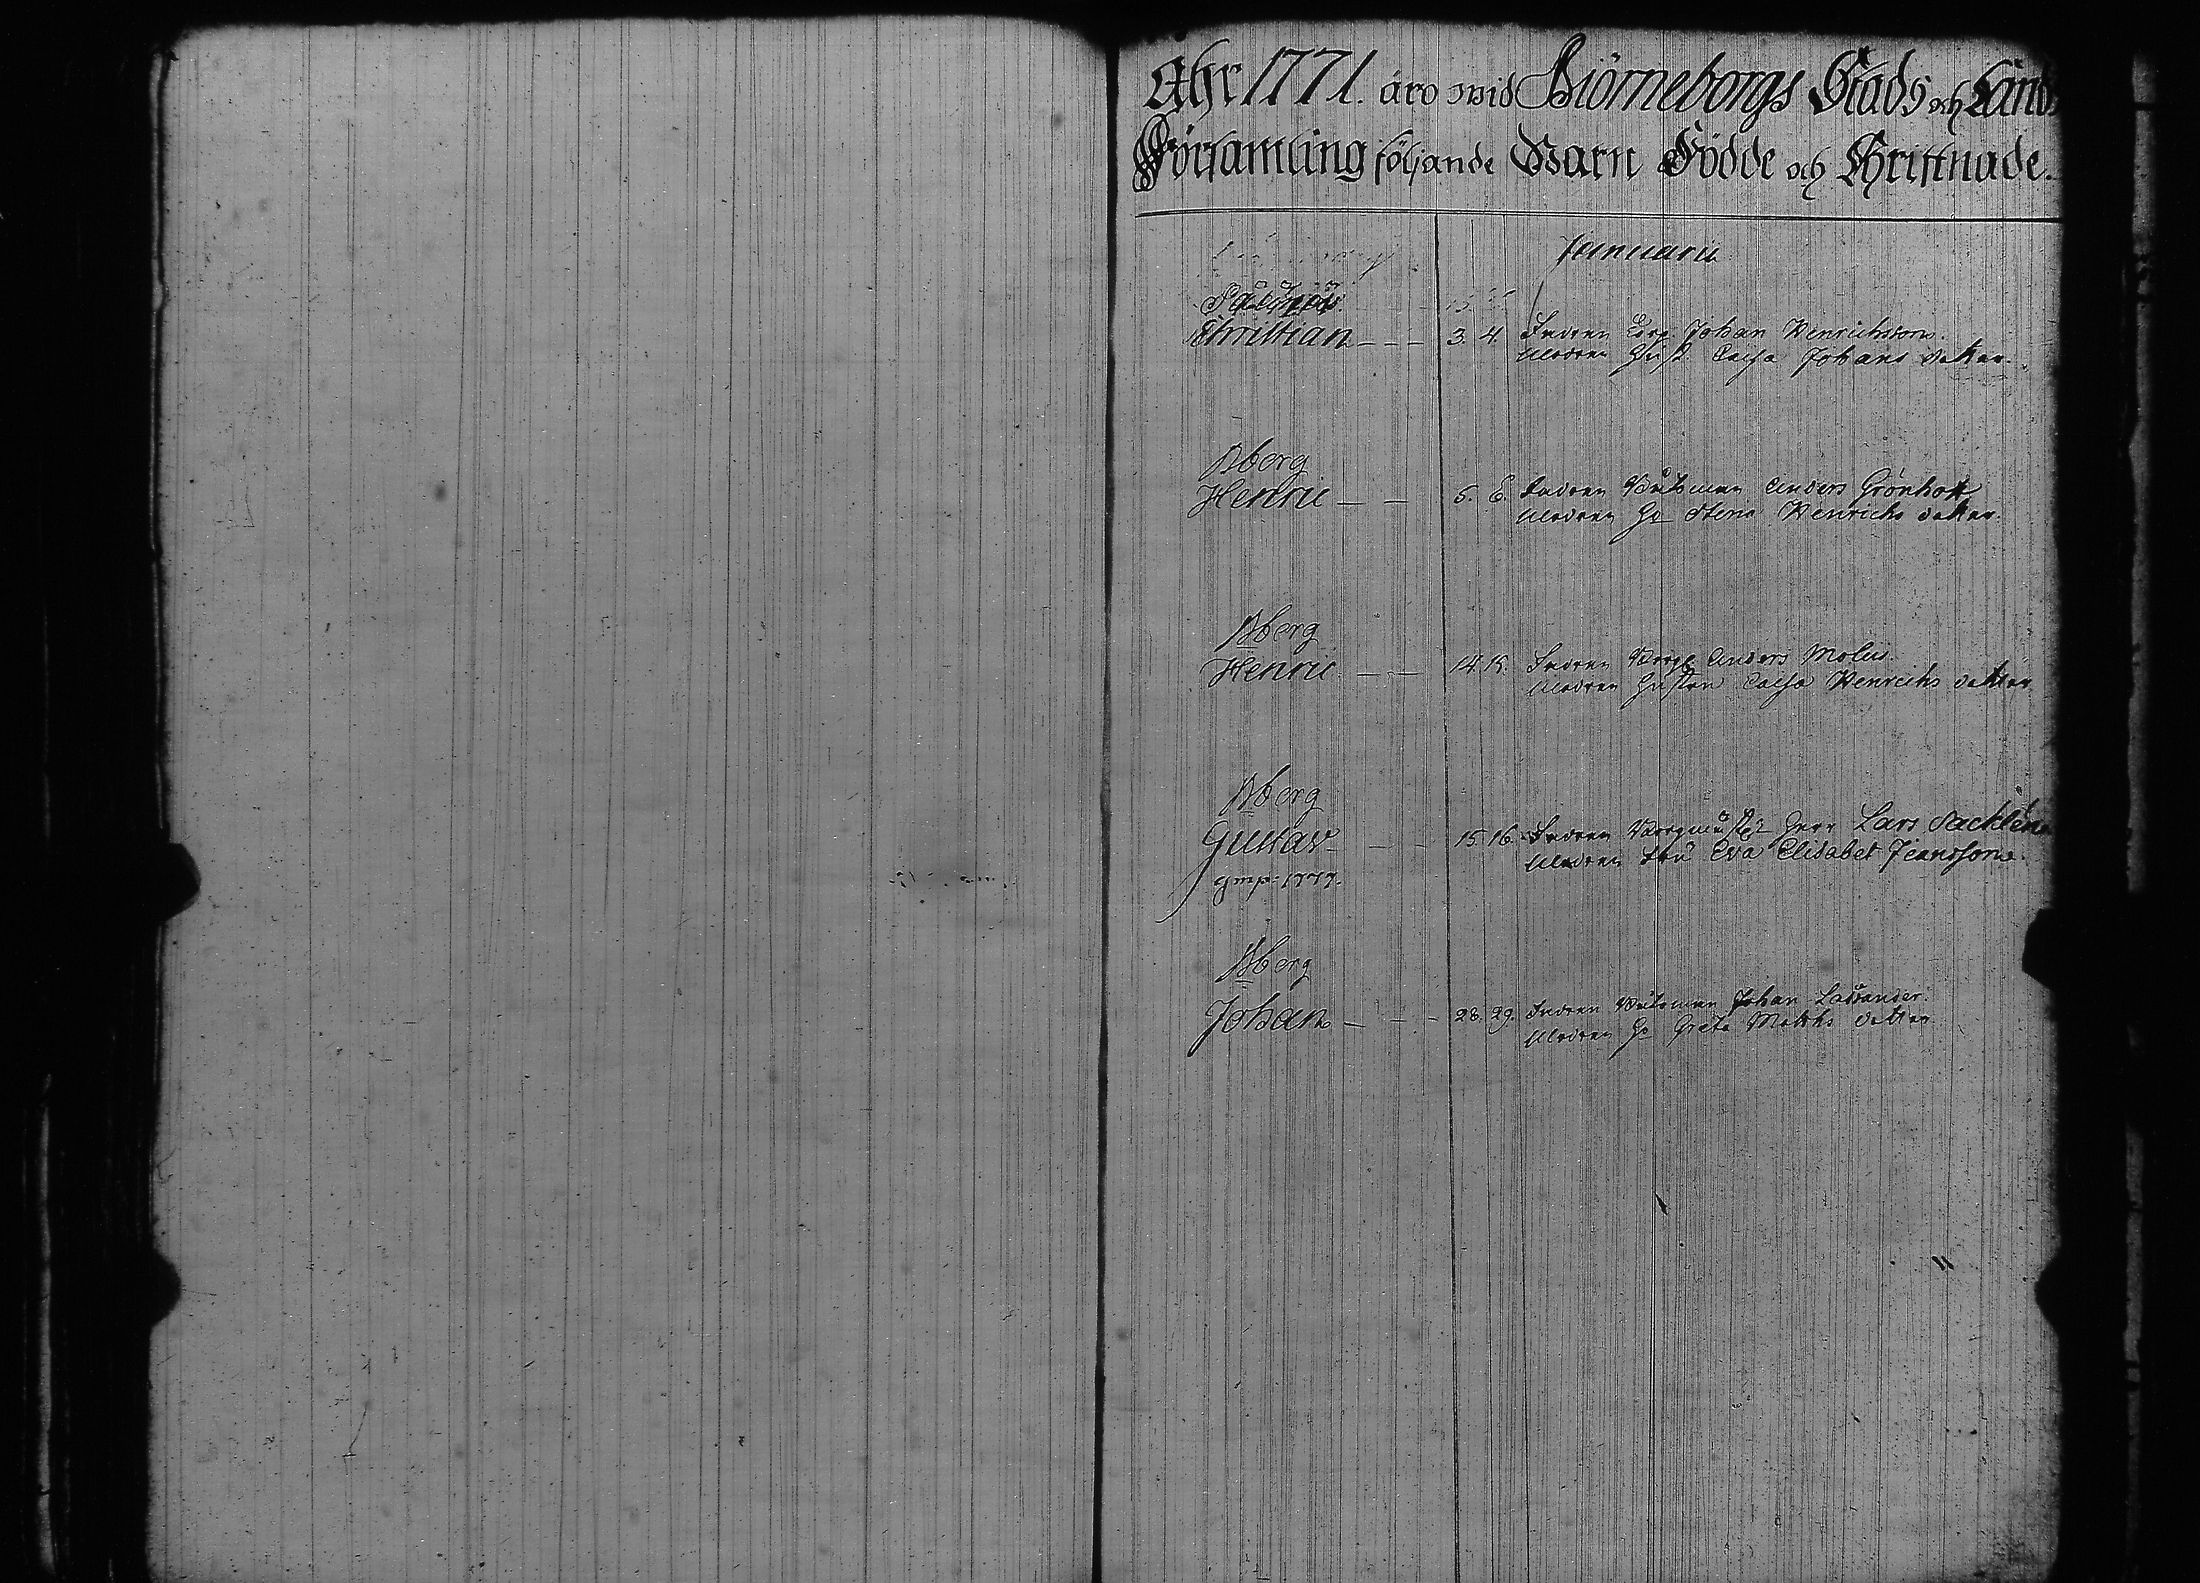 Ahr 1771. äro wid Biörneborgs Stads och Land
Församling följande Barn Födde och Christnade.
Januarii
Christian 3. 4. Fadren Johan Henrichsson.
Modren Hust. Caisa Johans dotter.
Bberg
Henric 5. 6. Fadren Båtsman Anders Grönhoff
Modren Hu Stena Henrichs dotter.
Bberg
Henric 14. 15. Fadren Borg. Anders Molin.
Modren Hustru Caisa Henrichs dotter
Bberg
Gustav 15. 16. Fadren Borgmäst. Herr Lars Sacklén
Modren Fru Eva Elisabet
1777.
Bberg
Johan 28. 29. Fadren Båtsman Johan Lassander.
Modren Hu Greta Matths dotter